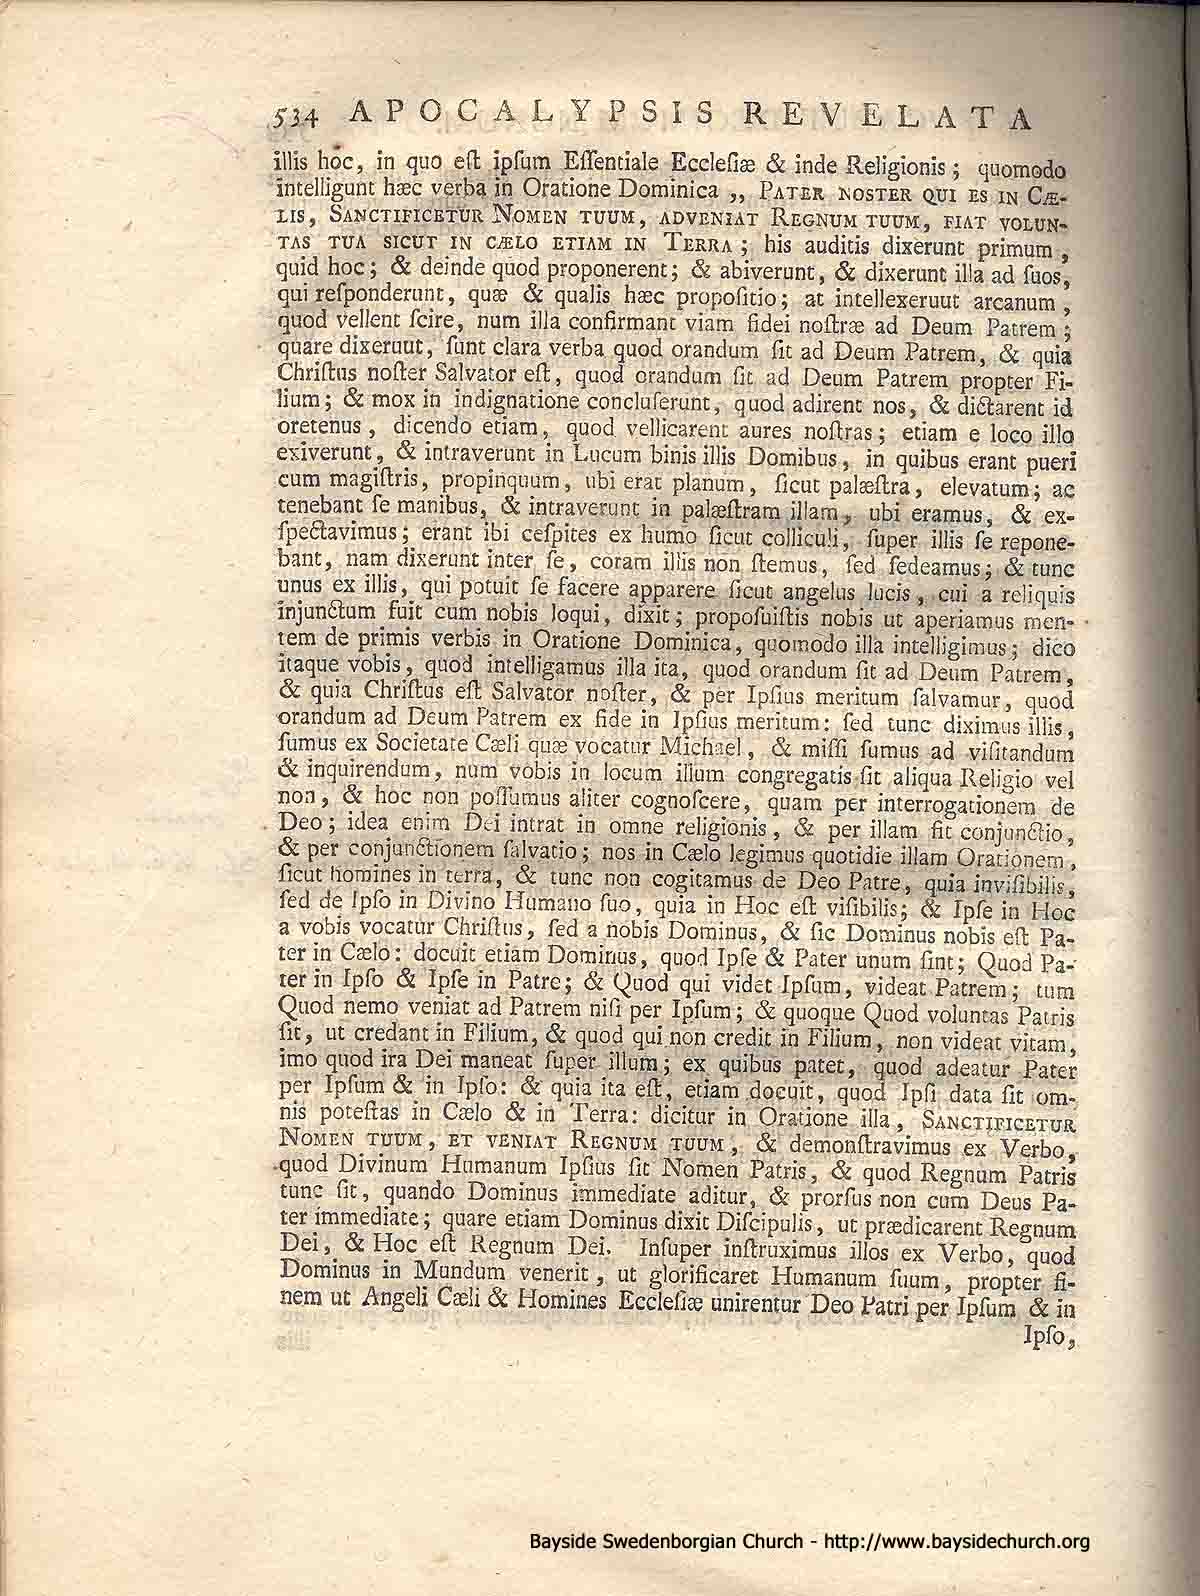 534 APOCALYPSIS REVELATA
illis hoc, in quo eſt ipſum Eſſentiale Eccleſiæ & inde Religionis; quomodo
intelligunt hæc verba in Oratione Dominica ,, PATER NOSTER QUI ES IN CÆ-
LIS, SANCTIFICETUR NOMEN TUUM, ADVENIAT REGNUM TUUM, FIAT VOLUN-
TAS TUA SICUT IN CÆLO ETIAM IN TERRA; his auditis dixerunt primum,
quid hoc; & deinde quod proponerent; & abiverunt, & dixerunt illa ad ſuos,
qui reſponderunt, quæ & qualis hæc propoſitio; at intellexeruut arcanum,
quod vellent ſcire, num illa confirmant viam fidei noſtræ ad Deum Patrem;
quare dixeruut, ſunt clara verba quod orandum ſit ad Deum Patrem, & quia
Chriſtus noſter Salvator eſt, quod orandum ſit ad Deum Patrem propter Fi-
lium; & mox in indignatione concluſerunt, quod adirent nos, & dictarent id
oretenus, dicendo etiam, quod vellicarent aures noſtras; etiam e loco illo
exiverunt, & intraverunt in Lucum binis illis Domibus, in quibus erant pueri
cum magiſtris, propinquum, ubi erat planum, ſicut palæſtra, elevatum; ac
tenebant ſe manibus, & intraverunt in palæſtram illam, ubi eramus, & ex-
ſpectavimus; erant ibi ceſpites ex humo ſicut colliculi, ſuper illis ſe repone-
bant, nam dixerunt inter ſe, coram illis non ſtemus, ſed ſedeamus; & tunc
unus ex illis, qui potuit ſe facere apparere ſicut angelus lucis, cui a reliquis
injunctum fuit cum nobis loqui, dixit; propoſuiſtis nobis ut aperiamus men-
tem de primis verbis in Oratione Dominica, quomodo illa intelligimus; dico
itaque vobis, quod intelligamus illa ita, quod orandum ſit ad Deum Patrem,
& quia Chriſtus eſt Salvator noſter, & per Ipſius meritum ſalvamur, quod
orandum ad Deum Patrem ex fide in Ipſius meritum: ſed tunc diximus illis,
ſumus ex Societate Cæli quæ vocatur Michael, & miſſi ſumus ad viſitandum
& inquirendum, num vobis in locum illum congregatis ſit aliqua Religio vel
non, & hoc non poſſumus aliter cognoſcere, quam per interrogationem de
Deo; idea enim Dei intrat in omne religionis, & per illam fit conjunctio,
& per conjunctionem ſalvatio; nos in Cælo legimus quotidie illam Orationem,
ſicut homines in terra, & tunc non cogitamus de Deo Patre, quia inviſibilis,
ſed de Ipſo in Divino Humano ſuo, quia in Hoc eſt viſibilis; & Ipſe in Hoc
a vobis vocatur Chriſtus, ſed a nobis Dominus, & ſic Dominus nobis eſt Pa-
ter in Cælo: docuit etiam Dominus, quod Ipſe & Pater unum ſint; Quod Pa-
ter in Ipſo & Ipſe in Patre; & Quod qui videt Ipſum, videat Patrem; tum
Quod nemo veniat ad Patrem niſi per Ipſum; & quoque Quod voluntas Patris
ſit, ut credant in Filium, & quod qui non credit in Filium, non videat vitam,
imo quod ira Dei maneat ſuper illum; ex quibus patet, quod adeatur Pater
per Ipſum & in Ipſo: & quia ita eſt, etiam docuit, quod Ipſi data ſit om-
nis poteſtas in Cælo & in Terra: dicitur in Oratione illa, SANCTIFICETUR
NOMEN TUUM, ET VENIAT REGNUM TUUM, & demonſtravimus ex Verbo,
quod Divinum Humanum Ipſius ſit Nomen Patris, & quod Regnum Patris
tunc ſit, quando Dominus immediate aditur, & prorſus non cum Deus Pa-
ter immediate; quare etiam Dominus dixit Diſcipulis, ut prædicarent Regnum
Dei, & Hoc eſt Regnum Dei. Inſuper inſtruximus illos ex Verbo, quod
Dominus in Mundum venerit, ut glorificaret Humanum ſuum, propter fi-
nem ut Angeli Cæli & Homines Eccleſiæ unirentur Deo Patri per Ipſum & in
Ipſo,
Bayside Swedenborgian Church - http://www.baysidechurch.org